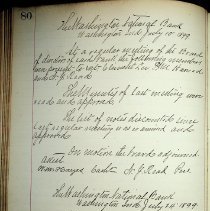 80
The Washington National Bank
Washington Ind July 10 1899
At a regular meeting of the Board
of directors of said bank the following members
were present
and S. J. Reed
The Minutes of last meeting were
read and approved
The list of notes discounted since
last regular meeting were examined and
approved
On motion the board adjourned
attest
Cashier S. J. Reed Pres
The Washington National Bank
Washington Ind July 24 1899